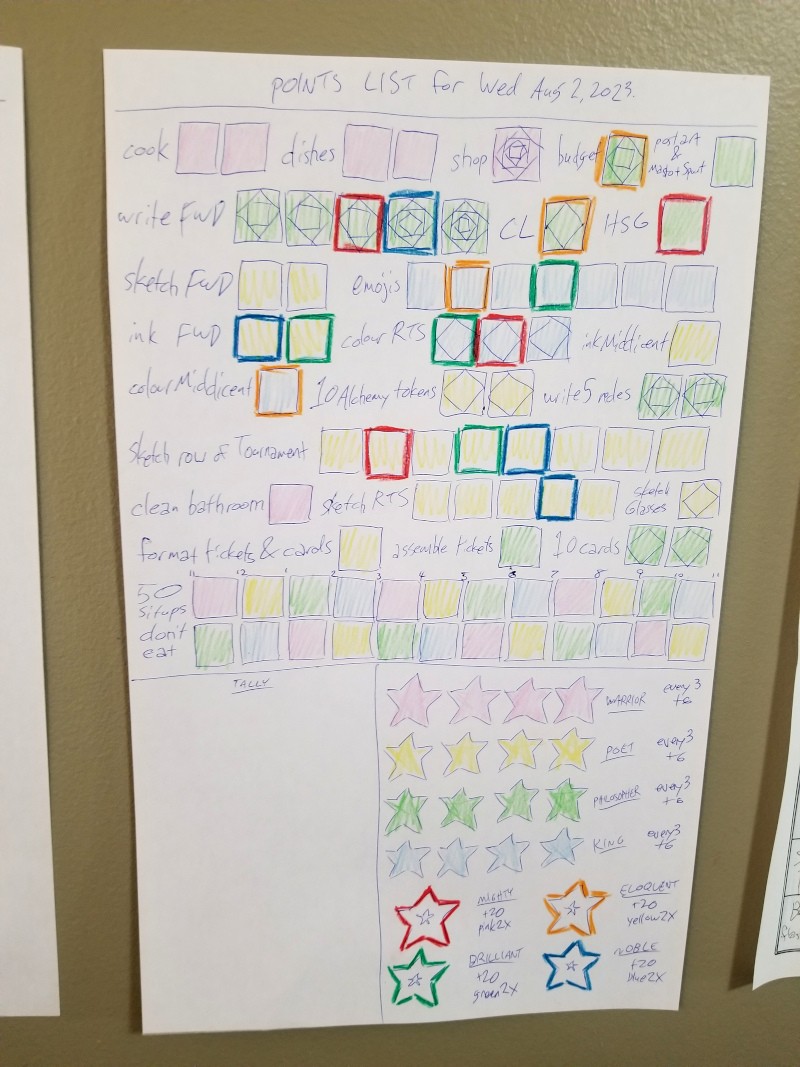 POINTS LIST for Wed Aug 2, 2023.
cook dishes shop budget post art & Maggot Spout
write FWD CL HSG
sketch FWD emojis
ink FWD colour RTS ink Middicent
colour Middicent 10 Alchemy tokens write 5 rules
sketch row of Tournament
clean bathroom sketch RTS sketch Glasses
format tickets & cards assemble tickets 10 cards
11 12 1 2 3 4 5 6 7 8 9 10 11
50 situps
don't eat
TALLY
WARRIOR every 3 +6
POET every 3 +6
PHILOSOPHER every 3 +6
KING every 3 +6
MIGHTY +20 pink 2X
ELOQUENT +20 yellow 2X
BRILLIANT +20 green 2X
NOBLE +20 blue 2X